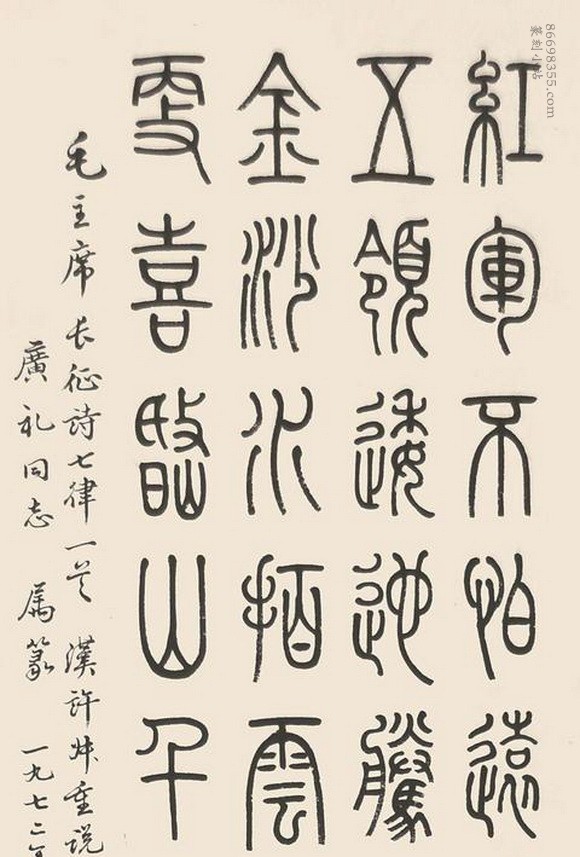 86698355.com
篆刻小站
紅軍不怕遠
五領逶迤騰
金沙水拍雲
更喜岷山千
毛主席长征詩七律一首 漢許叔重說
廣礼同志 属篆 一九七二年